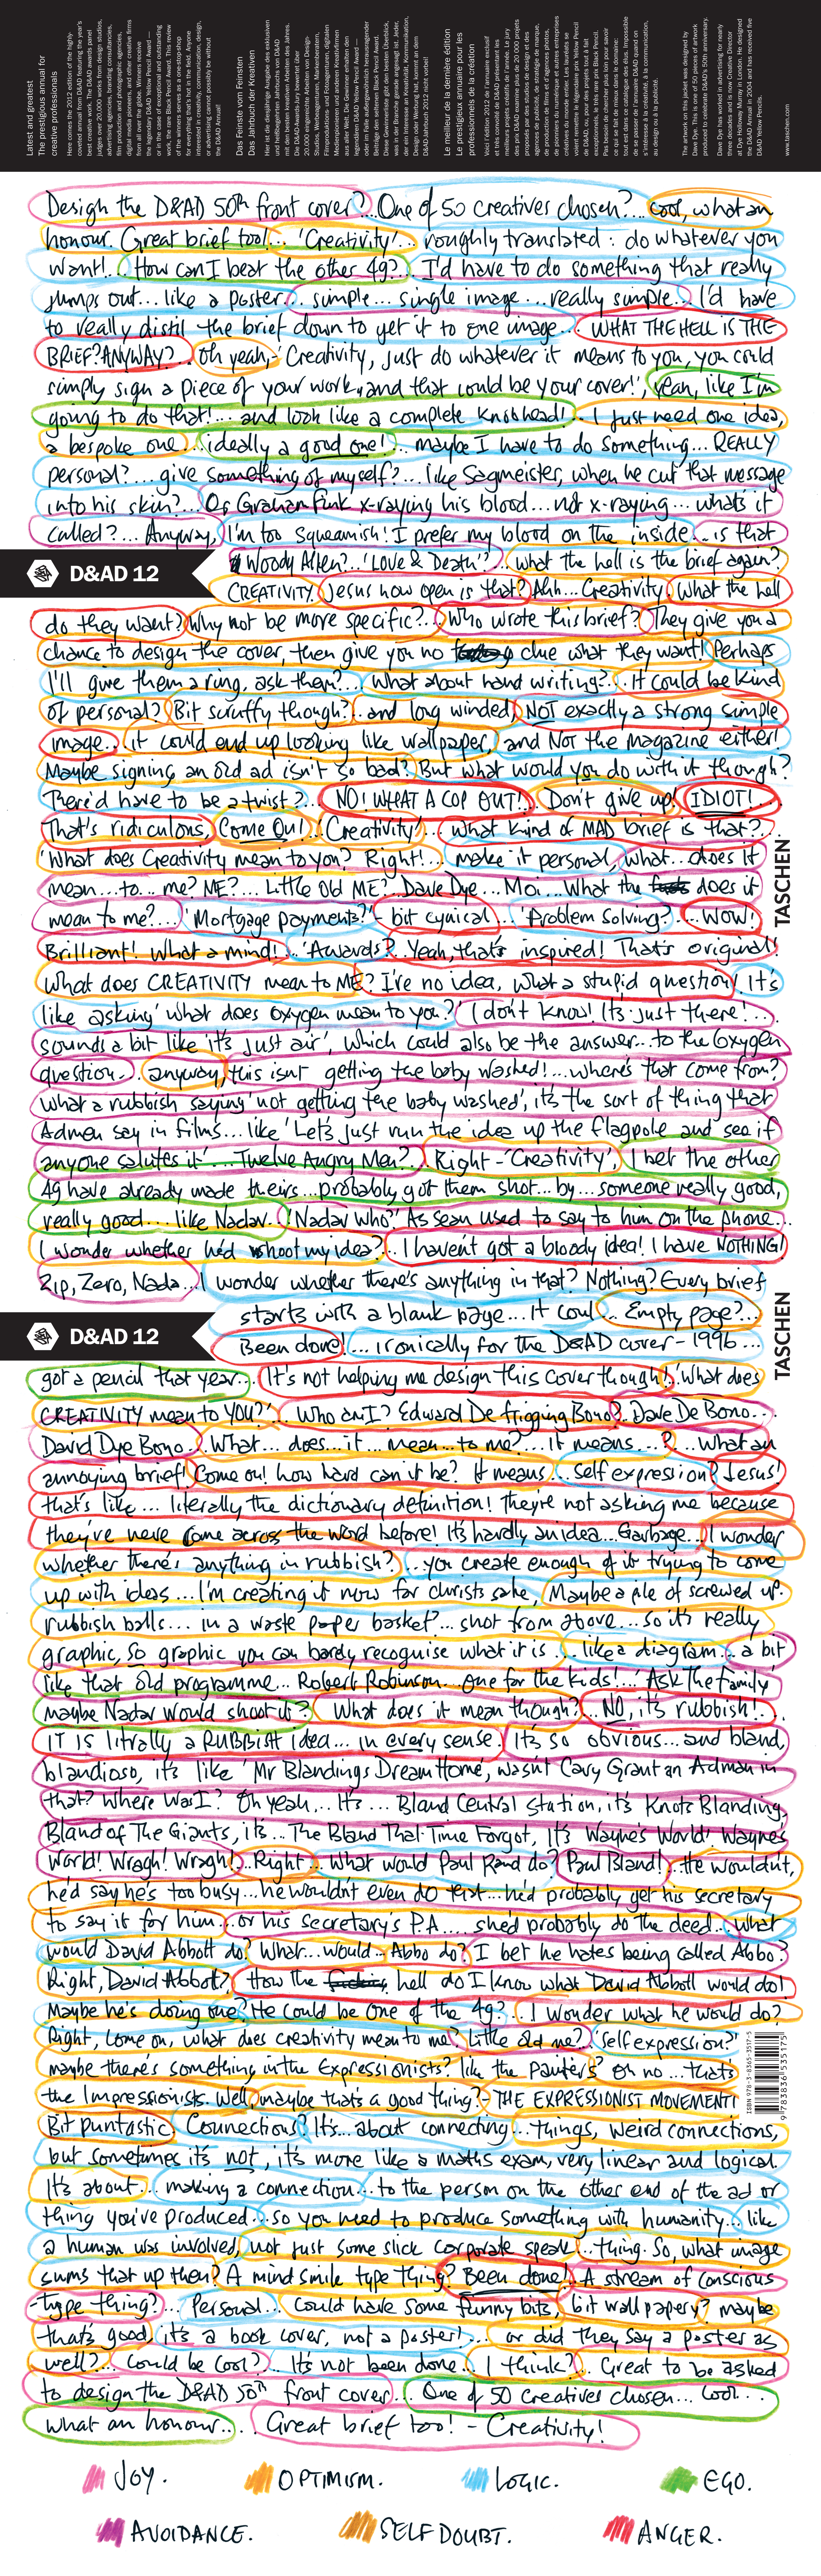 Latest and greatest
The prestigious annual for
creative professionals
Das Feinste vom Feinsten
Das Jahrbuch der Kreativen
Le meilleur de la dernière édition
Le prestigieux annuaire pour les
professionnels de la création
The artwork on this jacket was designed by
Dave Dye. This is one of 50 pieces of artwork
produced to celebrate D&AD's 50th anniversary.
www.taschen.com
Design the D&AD 50th front cover?... One of 50 creatives chosen?... Cool, what an
honour. Great brief too!... 'Creativity'... roughly translated: do whatever you
want!.. How can I beat the other 49?.. I'd have to do something that really
jumps out... like a poster.. simple... single image... really simple... I'd have
to really distil the brief down to get it to one image... WHAT THE HELL IS THE
BRIEF? ANYWAY?.. Oh yeah,- 'Creativity, just do whatever it means to you, you could
simply sign a piece of your work, and that could be your cover!', Yeah, like I'm
going to do that!... and look like a complete Knobhead!.. I just need one idea,
a bespoke one... ideally a good one!.. maybe I have to do something... REALLY
personal?.... give something of myself?... like Sagmeister, when he cut that message
into his skin?... Or Graham Fink x-raying his blood... not x-raying... what's it
called?... Anyway, I'm too squeamish! I prefer my blood on the inside... is that
Woody Allen?.. 'Love & Death'?.. what the hell is the brief again?
D&AD 12
CREATIVITY. Jesus how open is that? Ahh... Creativity. What the hell
do they want? Why not be more specific?.. Who wrote this brief? They give you a
chance to design the cover, then give you no clue what they want! Perhaps
I'll give them a ring, ask them?... What about hand writing?... It could be kind
of personal? Bit scruffy though?.. and long winded, NOT exactly a strong simple
image... it could end up looking like wallpaper, and Not the magazine either!
Maybe signing an old ad isn't so bad? But what would you do with it though?
There'd have to be a twist?... NO! WHAT A COP OUT!... Don't give up! IDIOT!...
That's ridiculous, Come On! 'Creativity'... what kind of MAD brief is that?...
'What does Creativity mean to you? Right!... make it personal, what... does it
TASCHEN
mean... to... me? ME?... Little Old ME? Dave Dye... Moi... What the does it
mean to me?... 'Mortgage payments?' - bit cynical... 'Problem solving?'... WOW!
Brilliant! What a mind!.. 'Awards?'.. Yeah, that's inspired! That's original!
What does CREATIVITY mean to ME? I've no idea, what a stupid question, It's
like asking 'what does oxygen mean to you?' I don't know! It's just there!...
sounds a bit like 'it's just air', which could also be the answer... to the Oxygen
question... anyway, this isn't getting the baby washed!... where's that come from?
What a rubbish saying 'not getting the baby washed', it's the sort of thing that
Admen say in films... like 'Let's just run the idea up the flagpole and see if
anyone salutes it'... Twelve Angry Men?.. Right - 'Creativity', I bet the other
49 have already made theirs... probably got them shot... by... someone really good,
really good... like Nadav. 'Nadav who?' As Sean used to say to him on the phone...
I wonder whether he'd shoot my idea?.. I haven't got a bloody idea! I have NOTHING!
Zip, Zero, Nada... I wonder whether there's anything in that? Nothing? Every brief
starts with a blank page... It coul... Empty page?...
D&AD 12
Been done!... ironically for the D&AD cover - 1996...
TASCHEN
got a pencil that year... It's not helping me design this cover though!. 'What does
CREATIVITY mean to YOU?'... Who am I? Edward De frigging Bono? Dave De Bono...
David Dye Bono. What... does... it... mean... to me?... it means...?... What an
annoying brief! Come on! how hard can it be? It means... Self expression? Jesus!
that's like... literally, the dictionary definition! They're not asking me because
they've neve come across the word before! It's hardly an idea... Garbage... I wonder
whether there's anything in rubbish?... you create enough of it trying to come
up with ideas... I'm creating it now for christs sake, Maybe a pile of screwed up
rubbish balls... in a waste paper basket?... shot from above... so it's really
graphic, So graphic you can barely recognise what it is... like a diagram... a bit
like that old programme... Robert Robinson... One for the kids!... 'Ask The Family'
maybe Nadav would shoot it? What does it mean though?.. NO, it's rubbish!...
IT IS litrally a RUBBISH idea... in every sense. It's so obvious... and bland,
blandioso, it's like 'Mr Blandings Dream Home', wasn't Cary Grant an Adman in
that? Where Was I? Oh yeah... It's... Bland Central Station, it's Knots Blanding,
Bland of The Giants, it's... The Bland That Time Forgot, It's Wayne's World! Waynes
World! Wragh! Wragh!.. Right... What would Paul Rand do? Paul Bland!.. He wouldn't,
he'd say he's too busy... he wouldn't even do that... he'd probably get his secretary
to say it for him... or his secretary's P.A.... she'd probably do the deed... what
would David Abbott do? What... would... Abbo do? I bet he hates being called Abbo?
Right, David Abbott? How the hell do I know what David Abbott would do!
Maybe he's doing one? He could be one of the 49?.. I wonder what he would do?
Right, come on, what does creativity mean to me? Little old me? 'Self expression?'
maybe there's something in the Expressionists? like the painters? Oh no... that's
the Impressionists. Well, maybe that's a good thing? - THE EXPRESSIONIST MOVEMENT!
ISBN 978-3-8365-3517-5
9 783836 535175
Bit puntastic. Connections? It's... about connecting... things, weird connections,
but sometimes it's not, it's more like a maths exam, very linear and logical.
It's about... making a connection... to the person on the other end of the ad or
thing you've produced... so you need to produce something with humanity... like
a human was involved, not just some slick corporate speak... thing. So, what image
sums that up then? A mind smile type thing? Been done! A stream of conscious
-type thing?... Personal... Could have some funny bits, bit wallpapery? maybe
that's good, it's a book cover, not a poster!... or did they say a poster as
well?... Could be cool?.. It's not been done... I think?.. Great to be asked
to design the D&AD 50th front cover... One of 50 creatives chosen... Cool...
what an honour... Great brief too! - Creativity!
JOY. OPTIMISM. LOGIC. EGO.
AVOIDANCE. SELF DOUBT. ANGER.